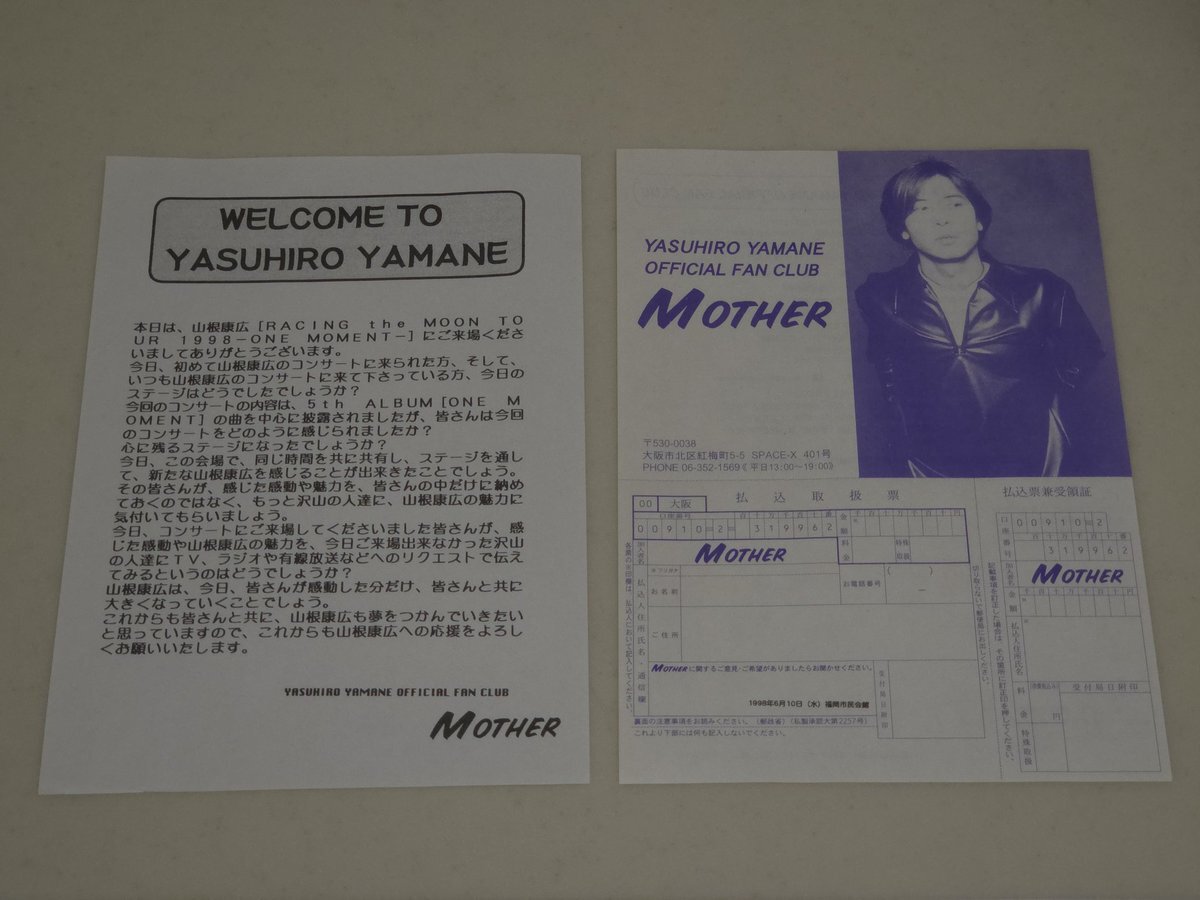 WELCOME TO
YASUHIRO YAMANE
本日は、山根康広[RACING the MOON TO
UR 1998-ONE MOMENT-]にご来場くださ
いましてありがとうございます。
今日、初めて山根康広のコンサートに来られた方、そして、
いつも山根康広のコンサートに来て下さっている方、今日の
ステージはどうでしたでしょうか?
今回のコンサートの内容は、5th ALBUM[ONE M
OMENT]の曲を中心に披露されましたが、皆さんは今回
のコンサートをどのように感じられましたか?
心に残るステージになったでしょうか?
今日、この会場で、同じ時間を共に共有し、ステージを通し
て、新たな山根康広を感じることが出来きたことでしょう。
その皆さんが、感じた感動や魅力を、皆さんの中だけに納め
ておくのではなく、もっと沢山の人達に、山根康広の魅力に
気付いてもらいましょう。
今日、コンサートにご来場してくださいました皆さんが、感
じた感動や山根康広の魅力を、今日ご来場出来なかった沢山
の人達にTV、ラジオや有線放送などへのリクエストで伝え
てみるというのはどうでしょうか?
山根康広は、今日、皆さんが感動した分だけ、皆さんと共に
大きくなっていくことでしょう。
これからも皆さんと共に、山根康広も夢をつかんでいきたい
と思っていますので、これからも山根康広への応援をよろし
くお願いいたします。
YASUHIRO YAMANE OFFICIAL FAN CLUB
MOTHER
YASUHIRO YAMANE
OFFICIAL FAN CLUB
MOTHER
〒530-0038
大阪市北区紅梅町5-5 SPACE-X 401号
PHONE 06-352-1569《平日13:00〜19:00》
00 大阪 払込取扱票
口座番号 百十万千百十番
00910 2 319962
金額 千百十万千百十円
料金 特殊取扱
加入者名 MOTHER
払込人住所氏名・通信欄
フリガナ
お名前
お電話番号 ( ) ー
ご住所
MOTHERに関するご意見・ご希望がありましたらお聞かせください。
1998年6月10日(水)福岡市民会館
受付局日附印
各票の※印欄は、払込人において記入してください。
裏面の注意事項をお読みください。(郵政省)(私製承認大第2257号)
これより下部には何も記入しないでください。
切り取らないで郵便局にお出しください。
記載事項を訂正した場合は、その箇所に訂正印を押してください。
払込票兼受領証
口座番号 00910 2
百十万千百十番
319962
加入者名 MOTHER
金額 千百十万千百十円
払込人住所氏名
料金 (消費税込み) 円
受付局日附印
特殊取扱